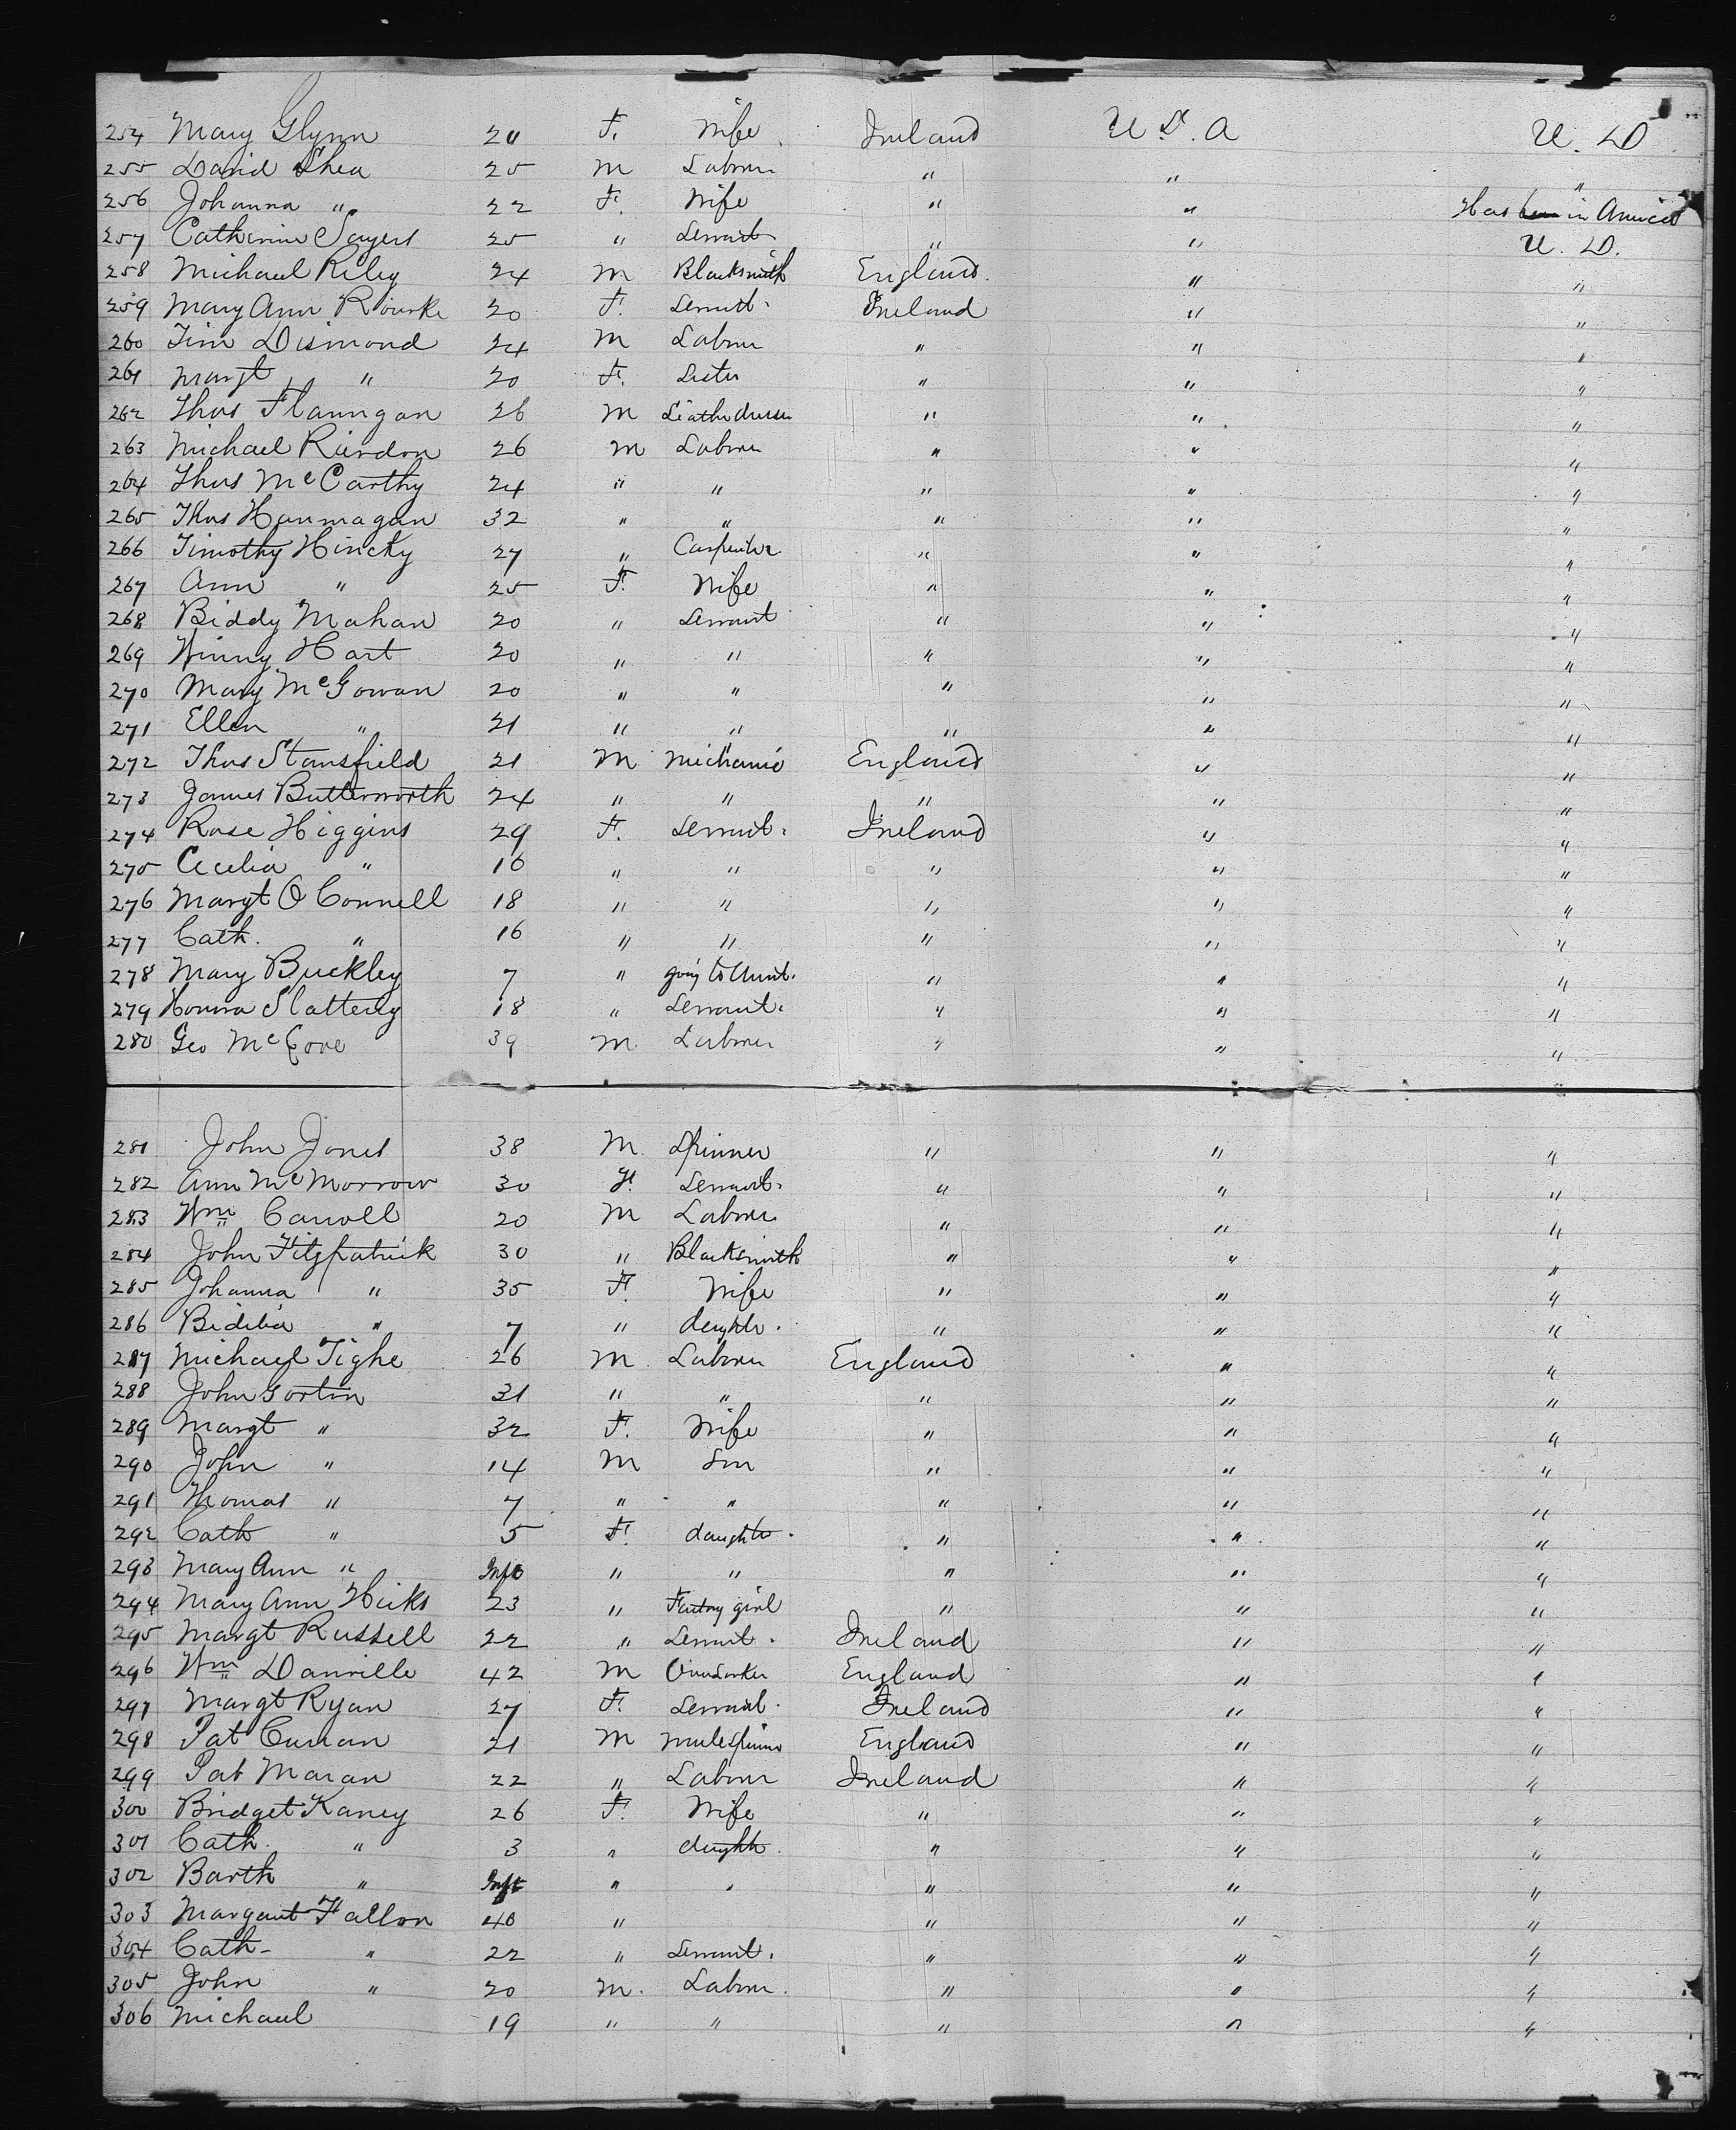 254 Mary Glynn 20 F. Wife Ireland U.S.A U.D
255 David Shea 25 M Labourer " " "
256 Johanna " 22 F. Wife " " Has been in America
257 Catherine Sayers 25 " Servant " " U.D.
258 Michael Riley 24 M Blacksmith England " "
259 Mary Ann Rourke 20 F. Servant Ireland " "
260 Tim Dismond 24 M Labour " " "
261 Margt " 20 F. Sister " " "
262 Thos Flannigan 26 M Leather dresser " " "
263 Michael Riordon 26 M Labour " " "
264 Thos McCarthy 24 " " " " "
265 Thos Hanmagan 32 " " " " "
266 Timothy Hincky 27 " Carpenter " " "
267 Ann " 25 F. Wife " " "
268 Biddy Mahan 20 " Servant " " "
269 Winny Hart 20 " " " " "
270 Mary McGowan 20 " " " " "
271 Ellen " 21 " " " " "
272 Thos Stansfield 21 M Mechanic England " "
273 James Butterworth 24 " " " " "
274 Rose Higgins 29 F. Servant Ireland " "
275 Cecelia " 16 " " " " "
276 Margt O Connell 18 " " " " "
277 Cath. " 16 " " " " "
278 Mary Buckley 7 " going to Aunt. " " "
279 Honna Slattery 18 " Servant. " " "
280 Geo 39 M Labourer " " "
281 John Jones 38 M. Spinner " " "
282 Ann McMorrow 30 F. Servant. " " "
283 Wm Carroll 20 M Labour " " "
284 John Fitzpatrick 30 " Blacksmith " " "
285 Johanna " 35 F. Wife " " "
286 Bidelia " 7 " daughter. " " "
287 Michael Tighe 26 M. Labour England " "
288 John Gorton 31 " " " " "
289 Margt " 32 F. Wife " " "
290 John " 14 M Son " " "
291 Thomas " 7 " " " " "
292 Cath " 5 F. daughter. " " "
293 Mary Ann " Inft " " " " "
294 Mary Ann Hicks 23 " Factory girl " " "
295 Margt Russell 22 " Servant. Ireland " "
296 Wm Danville 42 M England " "
297 Margt Ryan 27 F. Servant. Ireland " "
298 Pat Curran 21 M mule spinner England " "
299 Pat Maran 22 " Labour Ireland " "
300 Bridget Kaney 26 F. Wife " " "
301 Cath. " 3 " daughter. " " "
302 Barth " Inft " " " " "
303 Margaret Fallon 40 " " " "
304 Cath - " 22 " Servant. " " "
305 John " 20 M. Labour. " " "
306 Michael 19 " " " " "